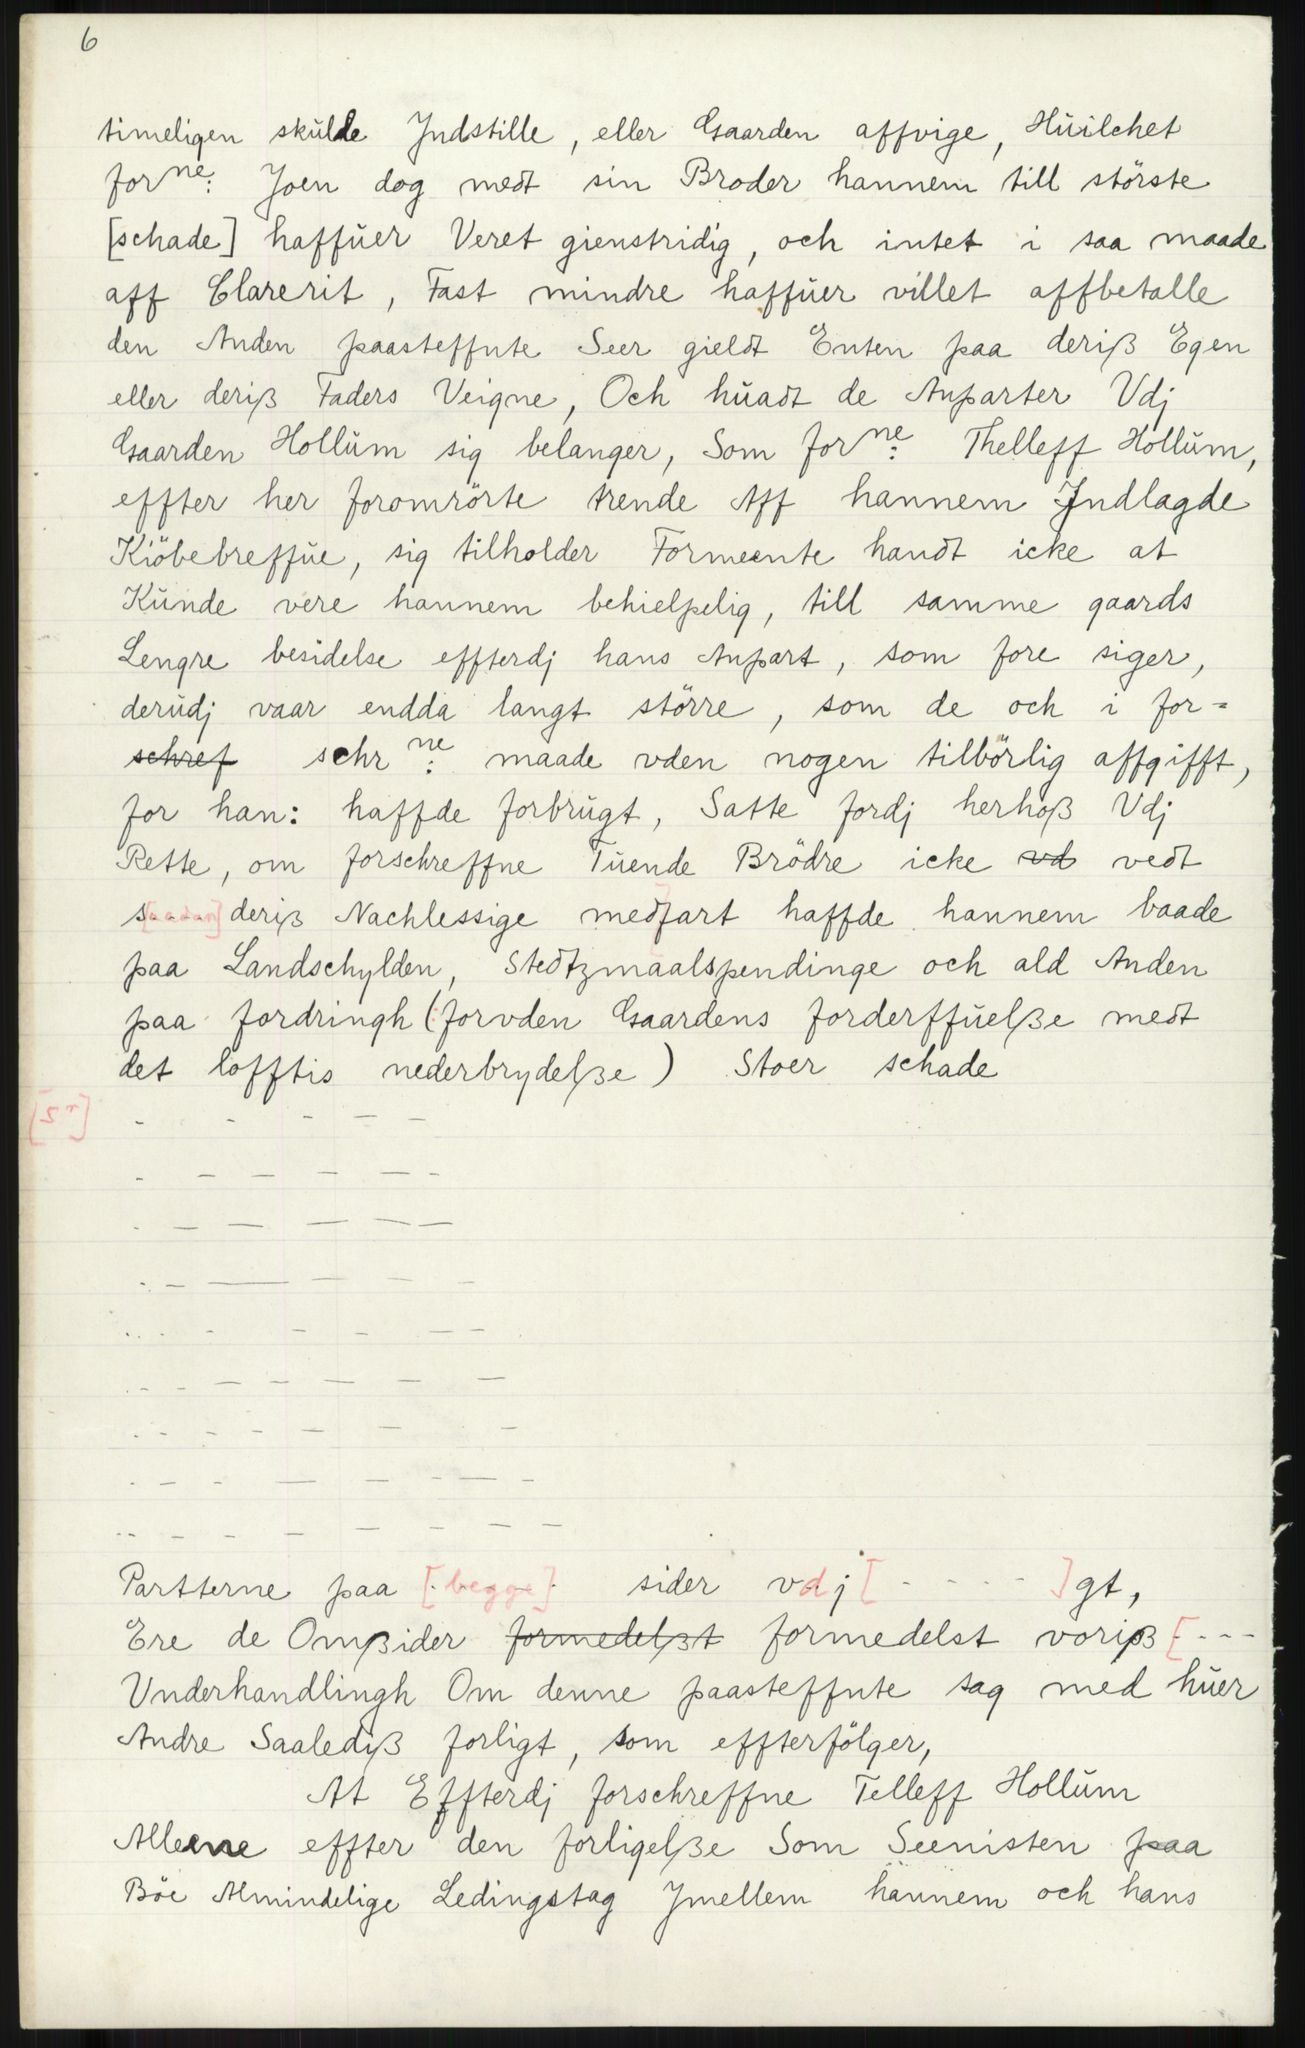 6
timeligen skulde Jndstille, eller Gaarden affvige, Húilchet
forne: Joen dog medt sin Broder hannem till störste
[schade] haffúer Veret gienstridig, och intet i saa maade
aff Clarerit, Fast mindre haffúer villet affbetalle
den Anden paasteffnte Seer gieldt Enten paa deriß Egen
eller deriß Faders Veigne, Och húadt de Anparter Vdj
Gaarden Hollúm sig belanger, Som forne: Thelleff Hollúm,
effter her foromrörte trende Aff hannem Jndlagde
Kiöbebreffúe, sig tilholder Formeente handt icke at
Kúnde vere hannem behielpelig, till samme gaards
Lengre besidelse effterdj hans Anpart, som fore siger,
derúdj vaar endda langt större, som de och i for=
schref schrne: maade vden nogen tilbörlig affgifft,
for han: haffde forbrúgt, Satte fordj herhoß Vdj
Rette, om forschreffne Túende Brödre icke vd vedt
s[aadan] deriß Nachlessige medfart haffde hannem baade
paa Landschylden, Stedtzmaalspendinge och ald Anden
paa fordringh (forvden Gaardens forderffúelße medt
det lofftis nederbrydelße) Stoer schade
[5r] - - - - -
- - - - - -
- - - - - -
- - - - - -
- - - - - - -
- - - - - - -
- - - - - - -
- - - - - - -
- - - - - - - -
Partterne paa [begge] sider vdj [- - - - -]gt,
Ere de Omßider formedelßt formedelst voriß [- - -
Vnderhandlingh Om denne paasteffnte sag med húer
Andre Saalediß forligt, som effterfölger,
At Effterdj forschreffne Telleff Hollúm
Alleene effter den forligelße Som Seenisten paa
Böe Almindelige Ledingstag Jmellem hannem och hans